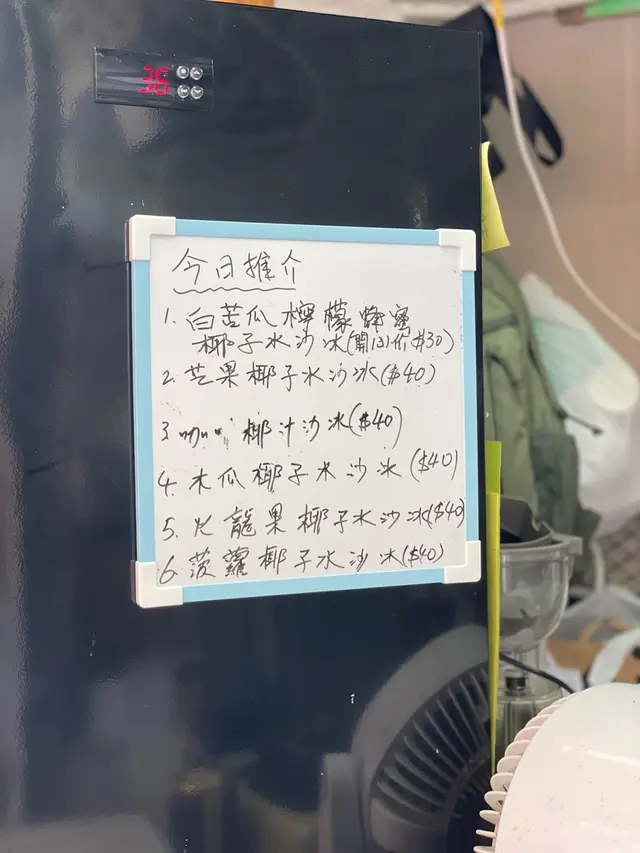 36
今日推介
1. 白苦瓜檸檬蜂蜜
椰子水沙冰(開心价$30)
2. 芒果椰子水沙冰($40)
3. 椰汁沙冰($40)
4. 木瓜椰子水沙冰($40)
5. 火龍果椰子水沙冰($40)
6. 菠蘿椰子水沙冰($40)